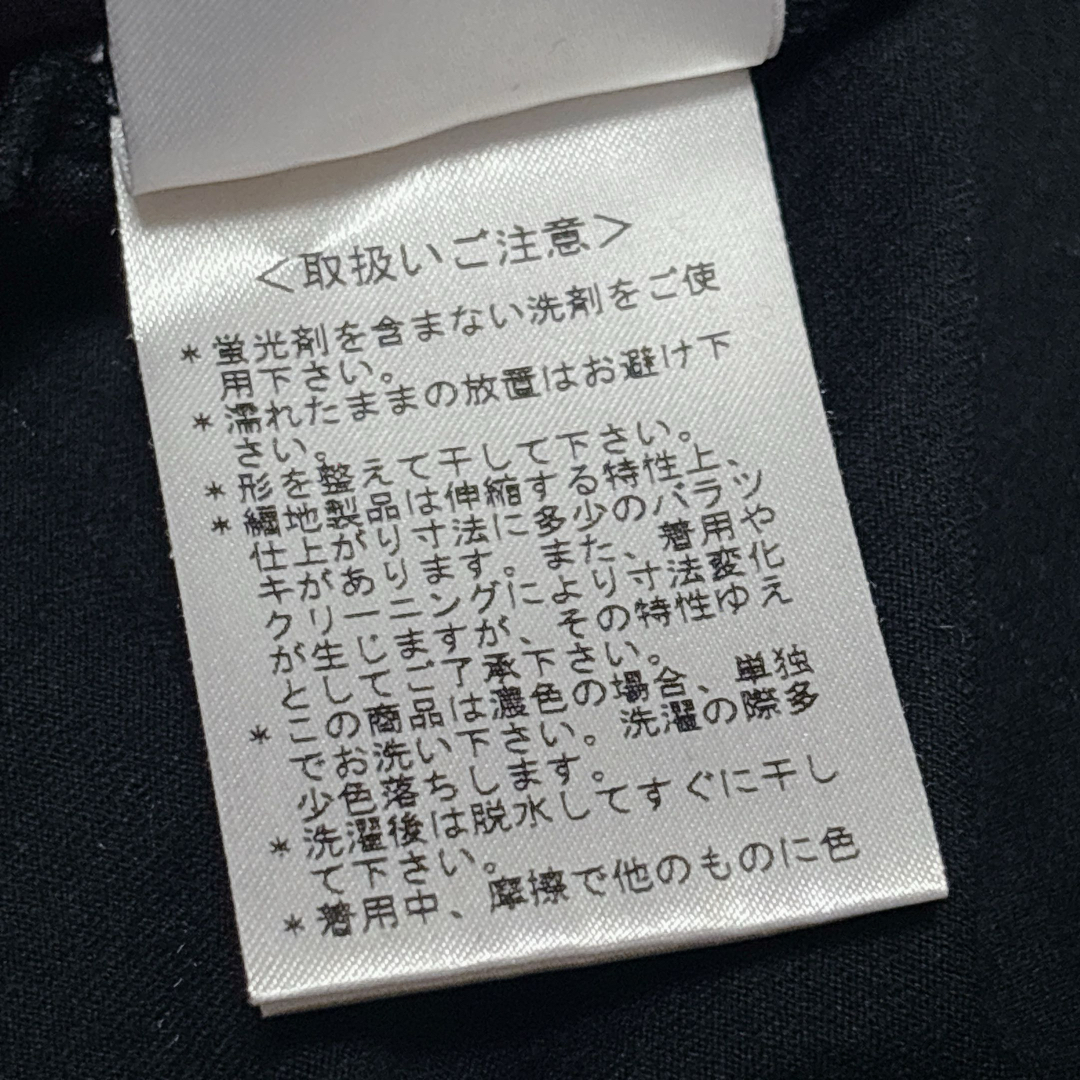 ＜取扱いご注意＞
*蛍光剤を含まない洗剤をご使
用下さい。
*濡れたままの放置はお避け下
さい。
*形を整えて干して下さい。
*編地製品は伸縮する特性上、
仕上がり寸法に多少のバラツ
キがあります。また、着用や
クリーニングにより寸法変化
が生じますが、その特性ゆえ
としてご了承下さい。
*この商品は濃色の場合、単独
でお洗い下さい。洗濯の際多
少色落ちします。
*洗濯後は脱水してすぐに干し
て下さい。
*着用中、摩擦で他のものに色